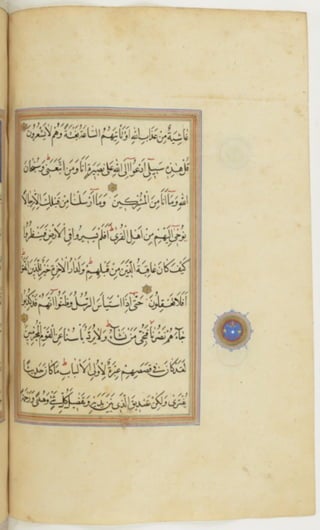 غَاشِيَةٌ مِنْ عَذَابِ اللهِ اَوْ تَأْتِيَهُمُ السَّاعَةُ بَغْتَةً وَهُمْ لَا يَشْعُرُونَ
قُلْ هٰذِهِ سَبِيلِي اَدْعُوا اِلَى اللهِ عَلَى بَصِيرَةٍ اَنَا وَمَنِ اتَّبَعَنِي وَسُبْحَانَ
اللهِ وَمَا اَنَا مِنَ الْمُشْرِكِينَ وَمَا اَرْسَلْنَا مِنْ قَبْلِكَ اِلَّا رِجَالًا
نُوحِي اِلَيْهِمْ مِنْ اَهْلِ الْقُرَى اَفَلَمْ يَسِيرُوا فِي الْاَرْضِ فَيَنْظُرُوا
كَيْفَ كَانَ عَاقِبَةُ الَّذِينَ مِنْ قَبْلِهِمْ وَلَدَارُ الْاٰخِرَةِ خَيْرٌ لِلَّذِينَ اتَّقَوْا
اَفَلَا تَعْقِلُونَ حَتَّى اِذَا اسْتَيْاَسَ الرُّسُلُ وَظَنُّوا اَنَّهُمْ قَدْ كُذِبُوا
جَاءَهُمْ نَصْرُنَا فَنُجِّيَ مَنْ نَشَاءُ وَلَا يُرَدُّ بَأْسُنَا عَنِ الْقَوْمِ الْمُجْرِمِينَ
لَقَدْ كَانَ فِي قَصَصِهِمْ عِبْرَةٌ لِاُولِي الْاَلْبَابِ مَا كَانَ حَدِيثًا
يُفْتَرَى وَلٰكِنْ تَصْدِيقَ الَّذِي بَيْنَ يَدَيْهِ وَتَفْصِيلَ كُلِّ شَيْءٍ وَهُدًى وَرَحْمَةً